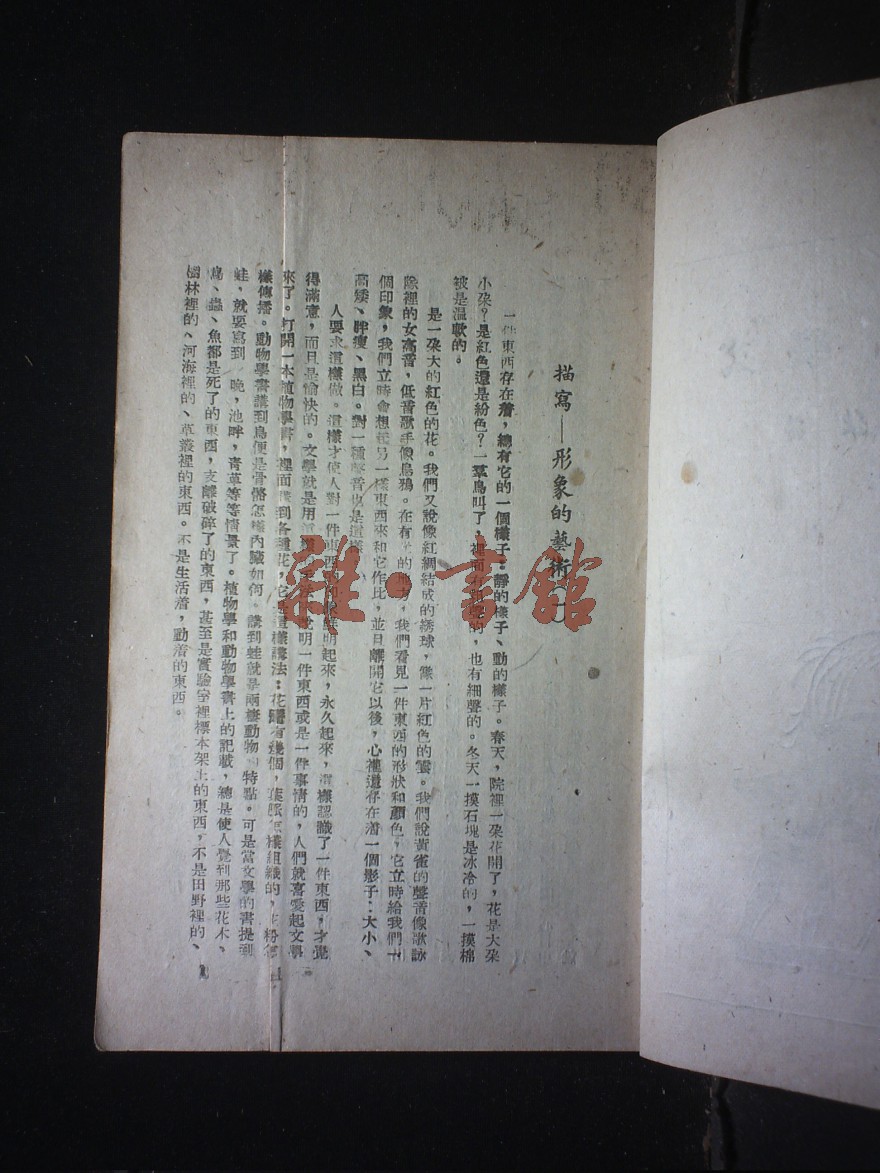 描寫——形象的藝術
一件東西存在着，總有它的一個樣子。靜的樣子、動的樣子。春天，院裡一朶花開了，花是大朶
小朶？是紅色還是紛色？一羣鳥叫了，裡面有的，也有細聲的。冬天一摸石塊是冰冷的，一摸棉
被是溫軟的。
是一朶大的紅色的花。我們又說像紅綢結成的綉球，像一片紅色的雲。我們說黃雀的聲音像歌詠
隊裡的女高音，低音歌手像烏鴉。在有的地方，我們看見一件東西的形狀和顏色，它立時給我們一
個印象，我們立時會想起另一樣東西來和它作比，並且離開它以後，心裡還存在着一個影子：大小、
高矮、胖瘦、黑白。對一種聲音也是這樣
人要求這樣做。這樣才使人對一件東西的鮮明起來，永久起來，這樣認識了一件東西，才覺
得滿意，而且是愉快的。文學就是用這說明一件東西或是一件事情的，人們就喜愛起文學
來了。打開一本植物學書，裡面講到各種花，它是這樣講法：花瓣有幾個，葉脈怎樣組織的，花粉怎
樣傳播。動物學書講到鳥便是骨骼怎樣內臟如何。講到蛙就是兩棲動物特點。可是當文學的書提到
蛙，就要寫到晚，池畔，青草等等情景了。植物學和動物學書上的記載，總是使人覺到那些花木、
鳥、蟲、魚都是死了的東西，支離破碎了的東西，甚至是實驗室裡標本架上的東西，不是田野裡的、
樹林裡的、河海裡的、草叢裡的東西。不是生活着，動着的東西。
雜·書館